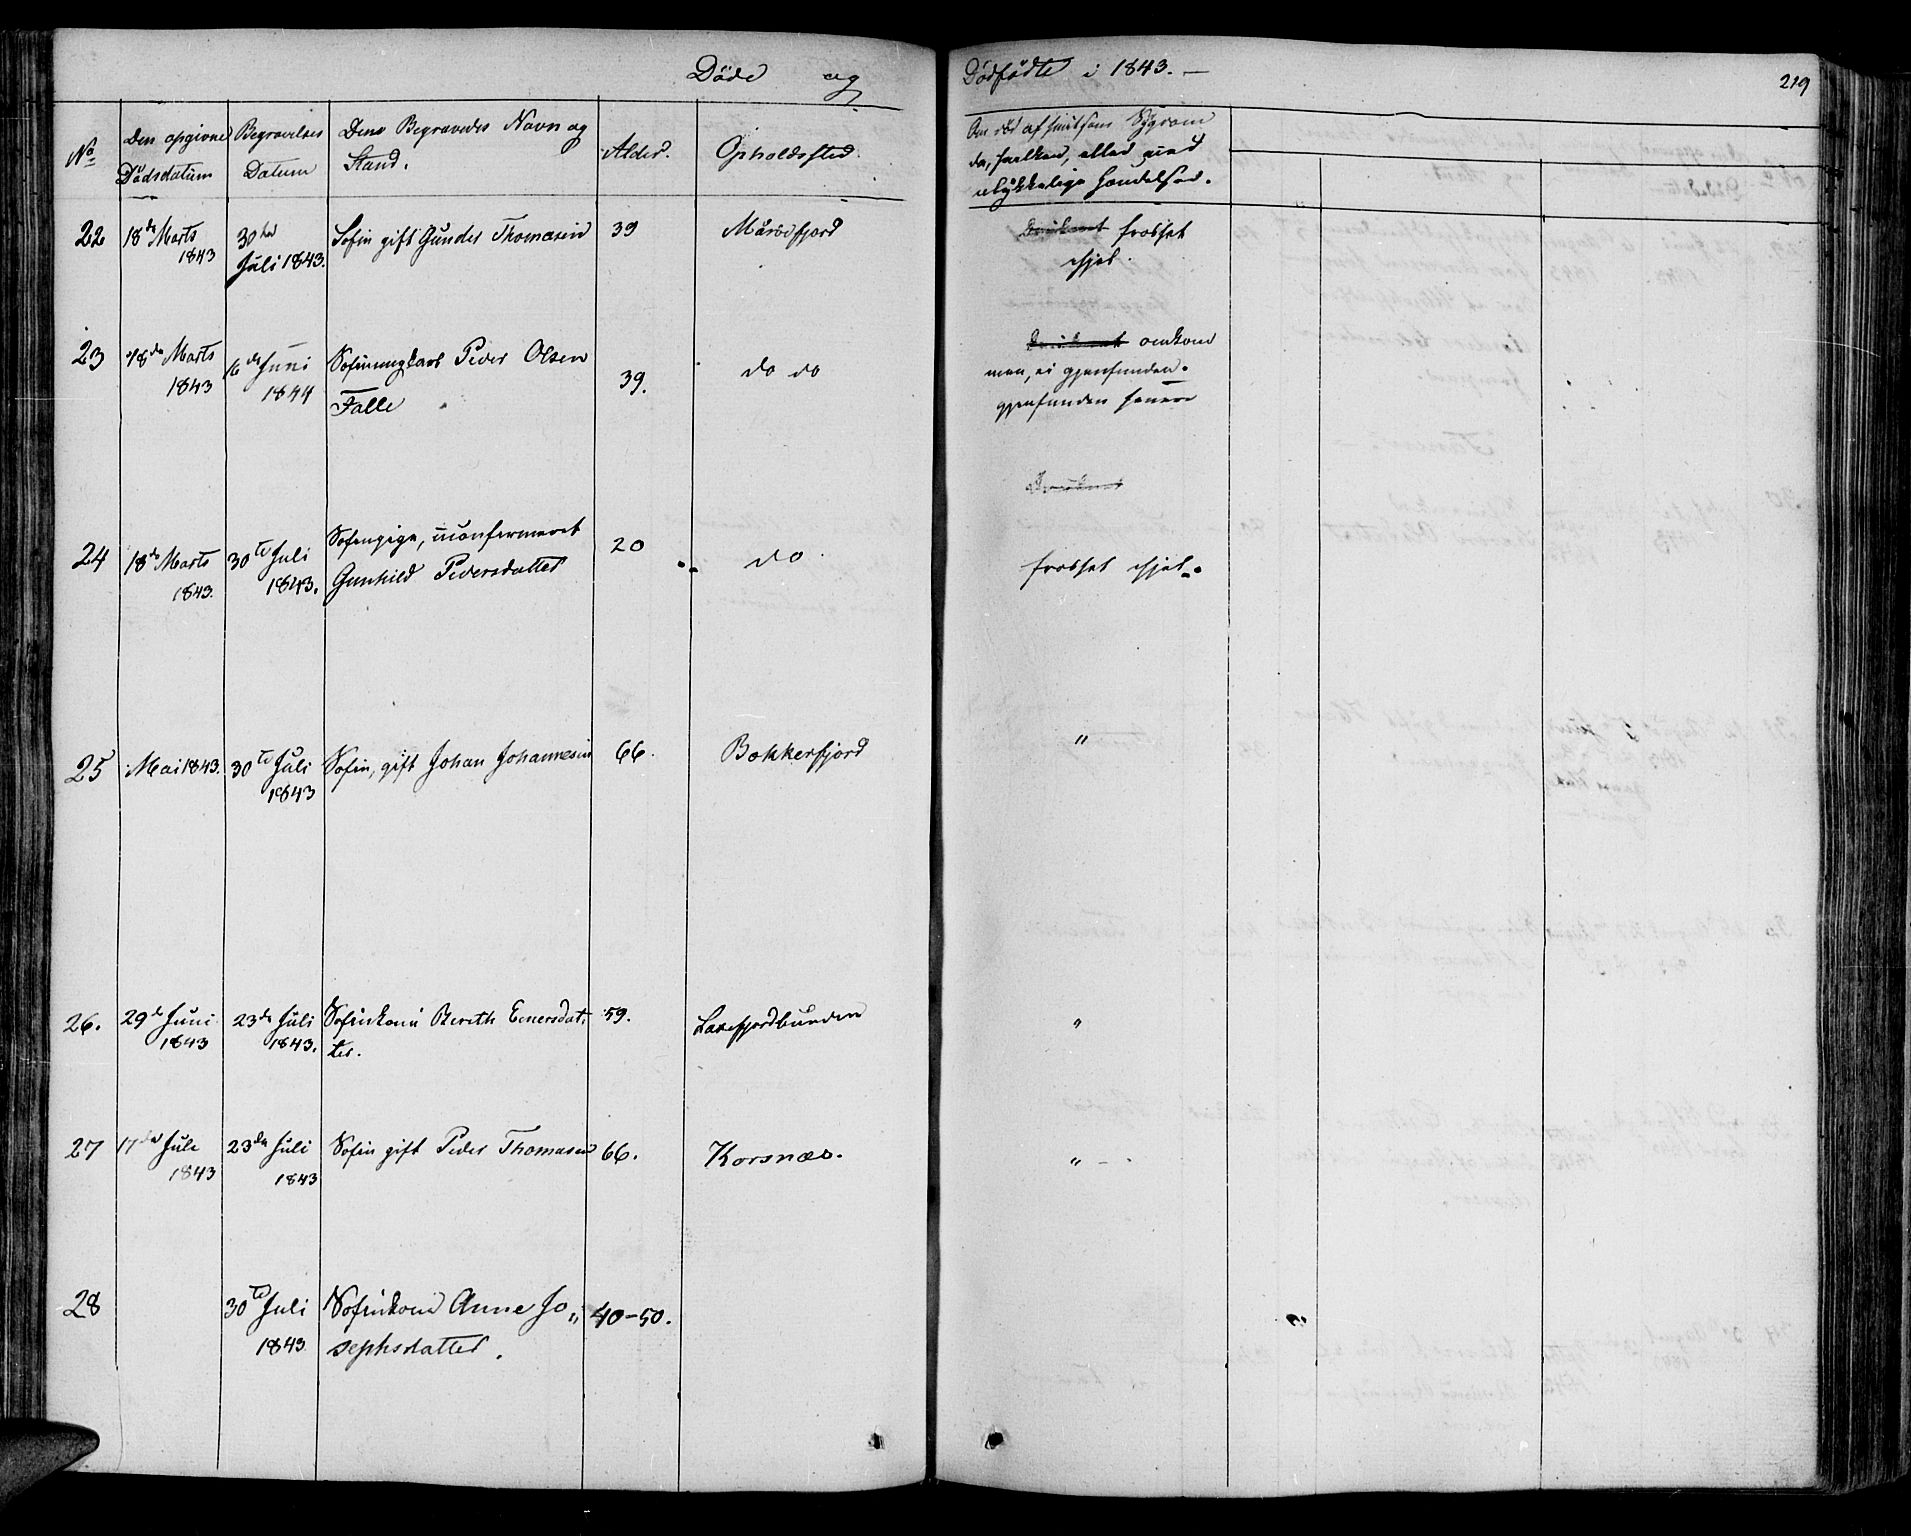 Döde og Dödfödte i 1843. —
219
No
Den opgivne
Dödsdatum
Begravelses
Datum
Dens Begravedes Navn og
Stand.
Alder.
Opholdssted.
Om död af smitsom Sygdom
da, hvilken, eller ved
ulykkelige Hændelser.
22
18de Marts
1843
30te
Juli 1843.
Sofin gift Gunder Thomasen
39
frosset
ihjel.
23
18de Marts
1843
6de Juni
1844
Peder Olsen
Falle
39.
do do
omkom
men, ei gjenfunden.
gjenfunden senere
24
18de Marts
1843.
30te Juli
1843.
Sofinpige, uconfermeret
Gunhild Pedersdatter
20
do
frosset ihjel.
25
Mai 1843.
30te Juli
1843
Sofin, gift Johan Johannesen
66.
Bokkerfjord
"
26.
29de Juni
1843
23de Juli
1843.
Sofinkone Bereth Einersdat,
ter.
59.
Laxefjordbunden
"
27
17de Jule
1843
23de Juli
1843
Sofin gift Peder Thomasen
66.
Korsnæs.
" - .
28
30te Juli
1843
Sofinkone Anne Jo „
sephsdatter.
40-50.